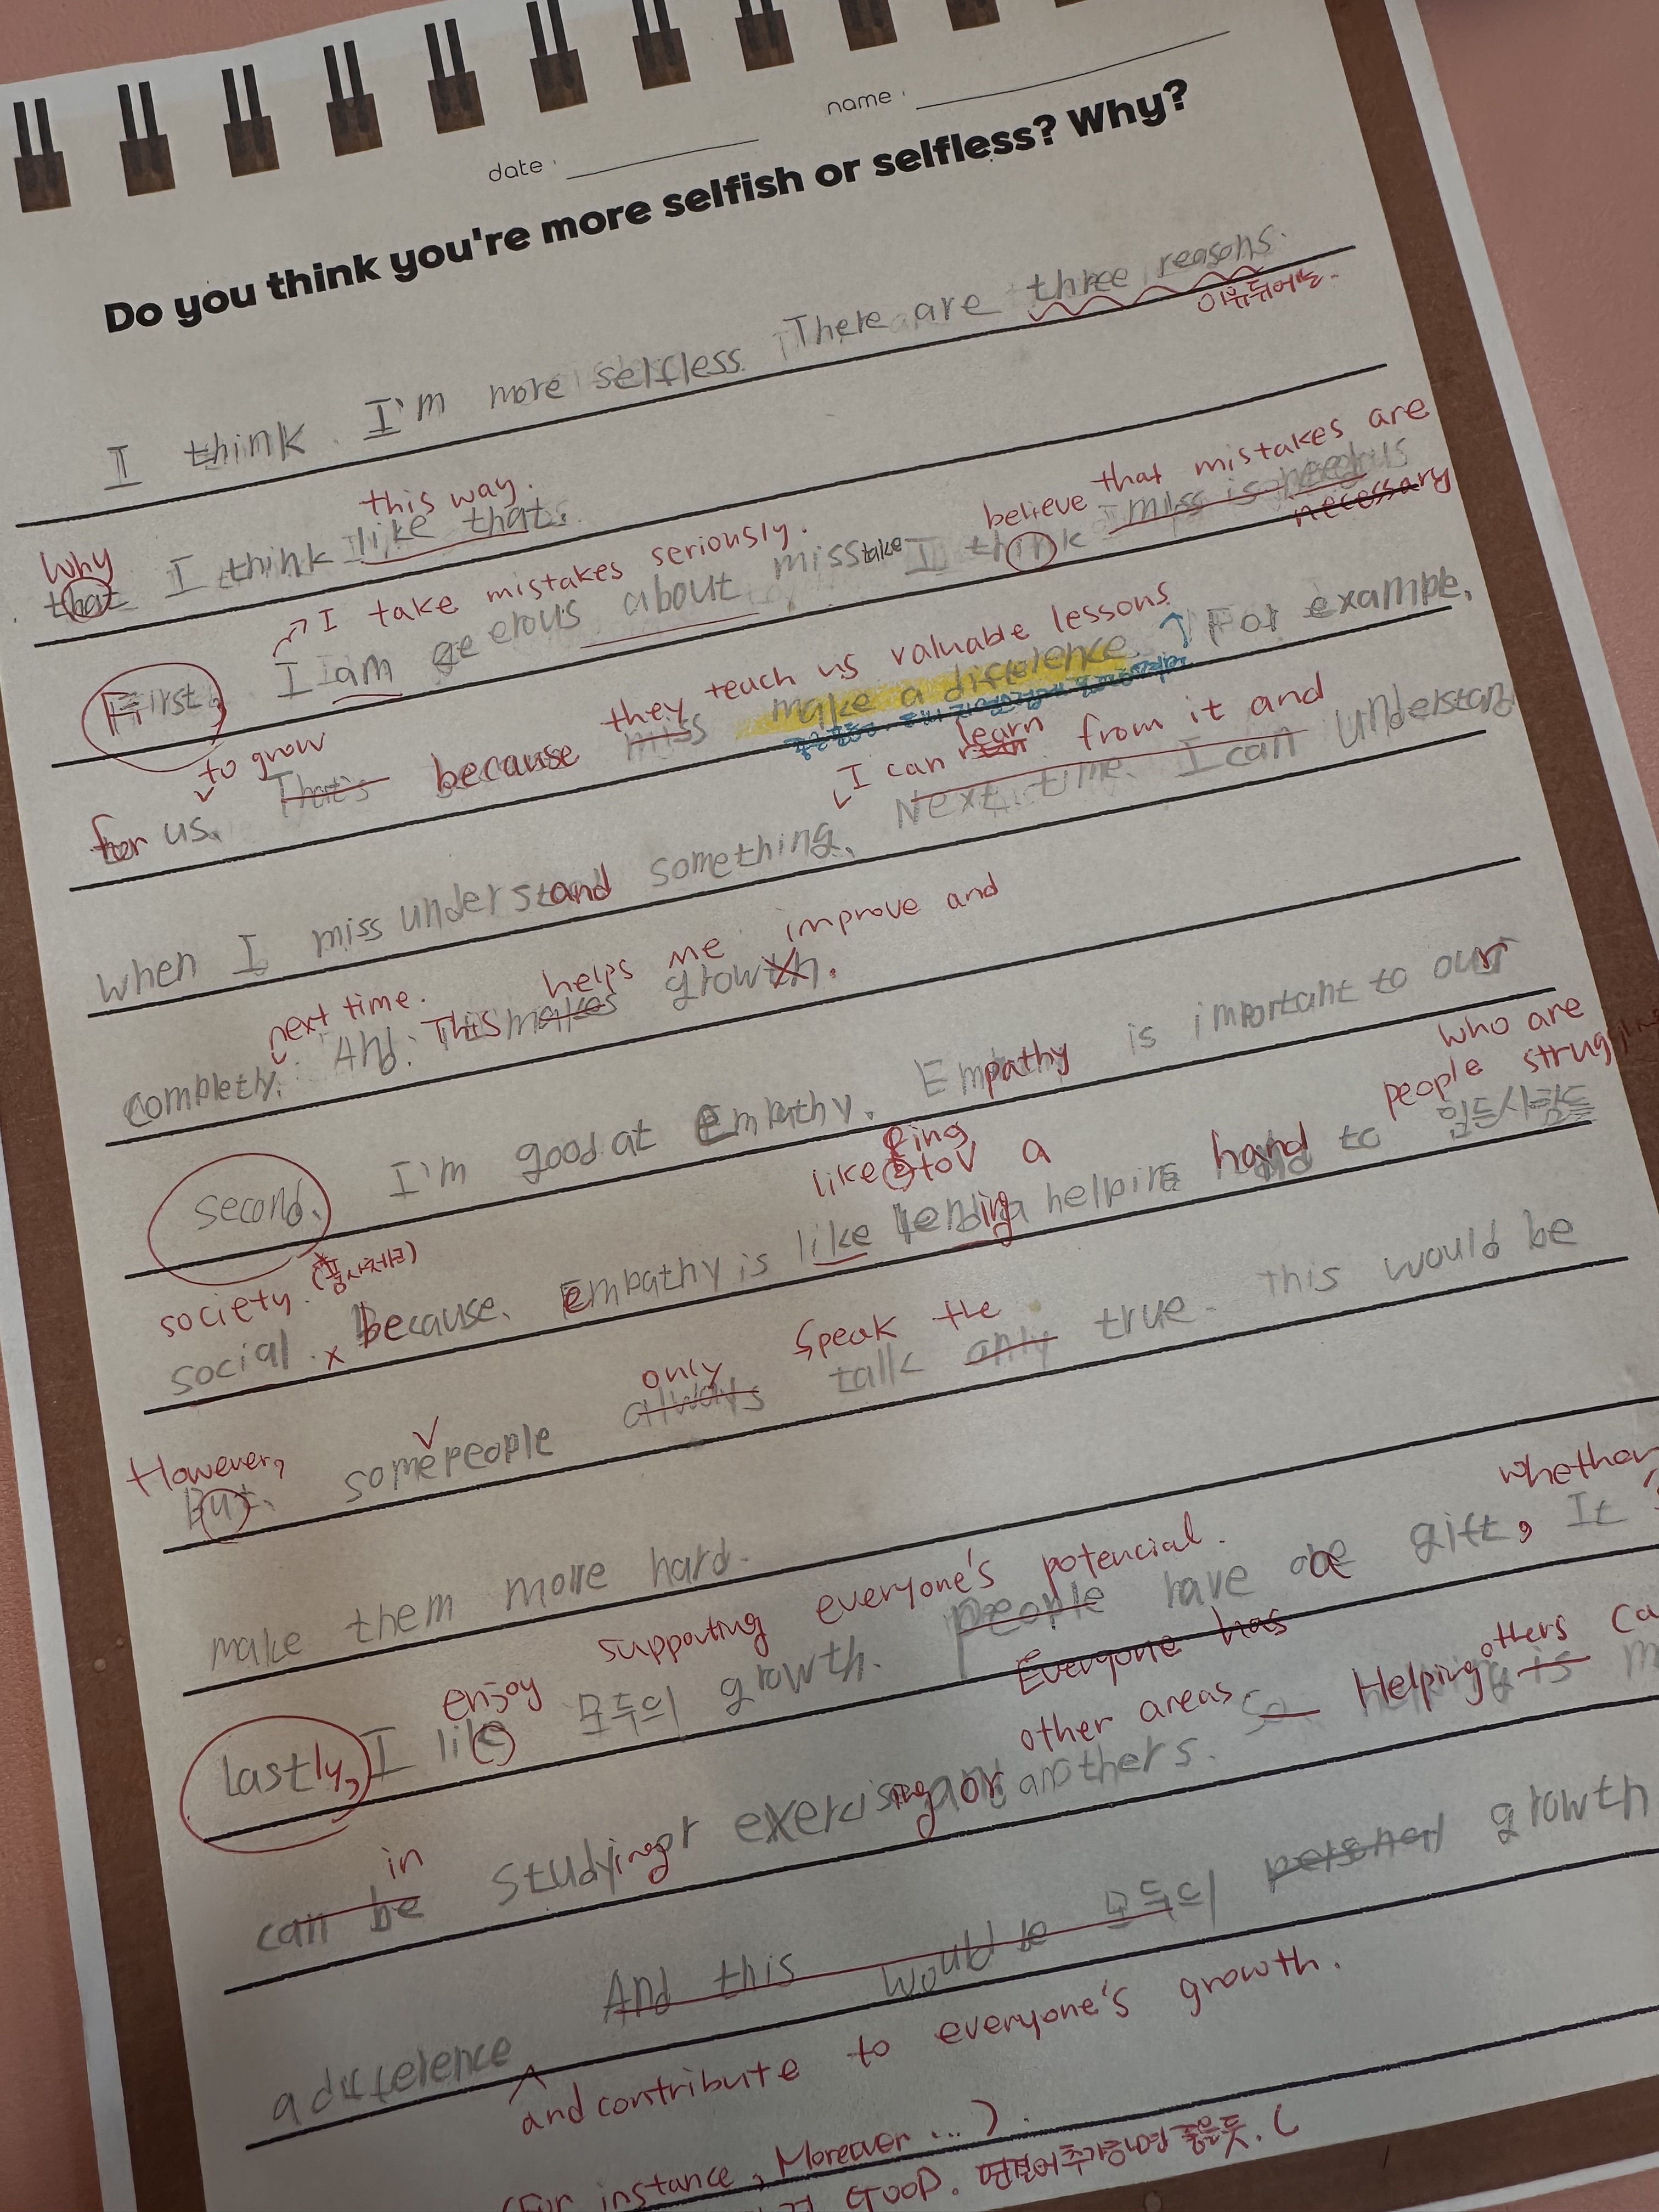 name :
date :
Do you think you're more selfish or selfless? Why?
I think I'm more selfless There are three reasons.
this way.
believe that mistakes are
Why
that I think like that.
I take mistakes seriously.
necessary
First, I am generous about misstake I think miss is
they teach us valuable lessons
to grow
for us. That's because miss make a difference. For example,
I can learn from it and
when I miss understand something. Next time. I can understand
next time. helps me improve and
completly. And: This makes growth.
who are
people struggling
Second. I'm good at Empathy. Empathy is important to our
like ing to a
society. (품사체크)
social. x Because. Empathy is like lending helping hand to 힘든사람들
only speak the
However,
But. some people always talk only true. this would be
make them more hard.
whether
enjoy supporting everyone's potencial.
lastly, I like 모두의 growth. people have a gift, It
Everyone has
in other areas Helping others
can be studying or exercising or anothers. So is
a difference And this would be 모두의 personal growth
and contribute to everyone's growth.
(For instance, Moreover ...).
GOOD.